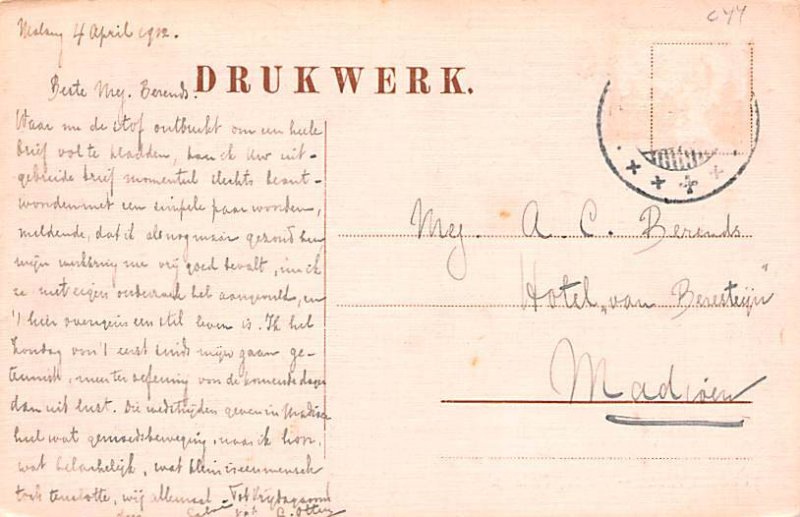 c44
Malang 4 April 1912.
DRUKWERK.
Beste Mej. Berends.
Waar me de stof ontbreekt om een heele
brief vol te kladden, kan ik Uw uit-
gebreide brief momenteel slechts beant-
woorden met een simpele paar woorden,
meldende, dat ik alsnog maar gezond ben
mijn werkkring me vrij goed bevalt,
ze met eigen het en
't hier overigens een stil leven is. Ik heb
Zondag voor 't eerst sinds mijn gaan ge-
tennist, meer ter oefening voor de komende dagen
dan uit lust. Die wedstrijden geven in Madioen
heel wat gemoedsbeweging, naar ik hoor,
wat belachelijk, wat klein is een mensch
toch tenslotte, wij allemaal - Tot Vrijdagavond
Mej. A. C. Berends
Hotel „van Beresteijn"
Madioen